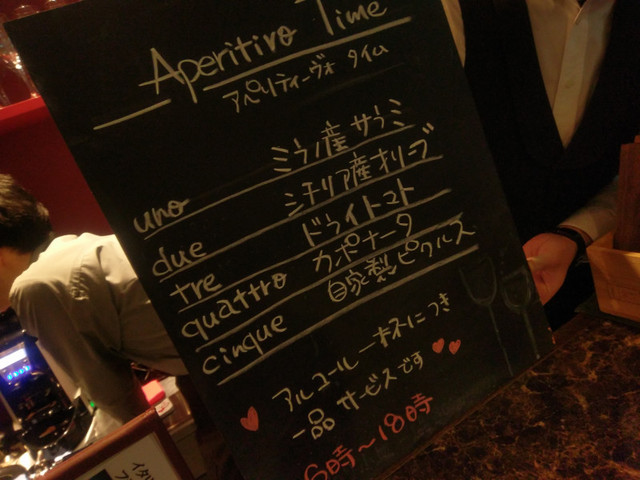 Aperitivo Time
アペリティーヴォ タイム
uno ミラノ産 サラミ
due シチリア産オリーブ
tre ドライトマト
quattro カポナータ
cinque 自家製ピクルス
アルコール一杯につき
一品 サービスです
6時〜18時